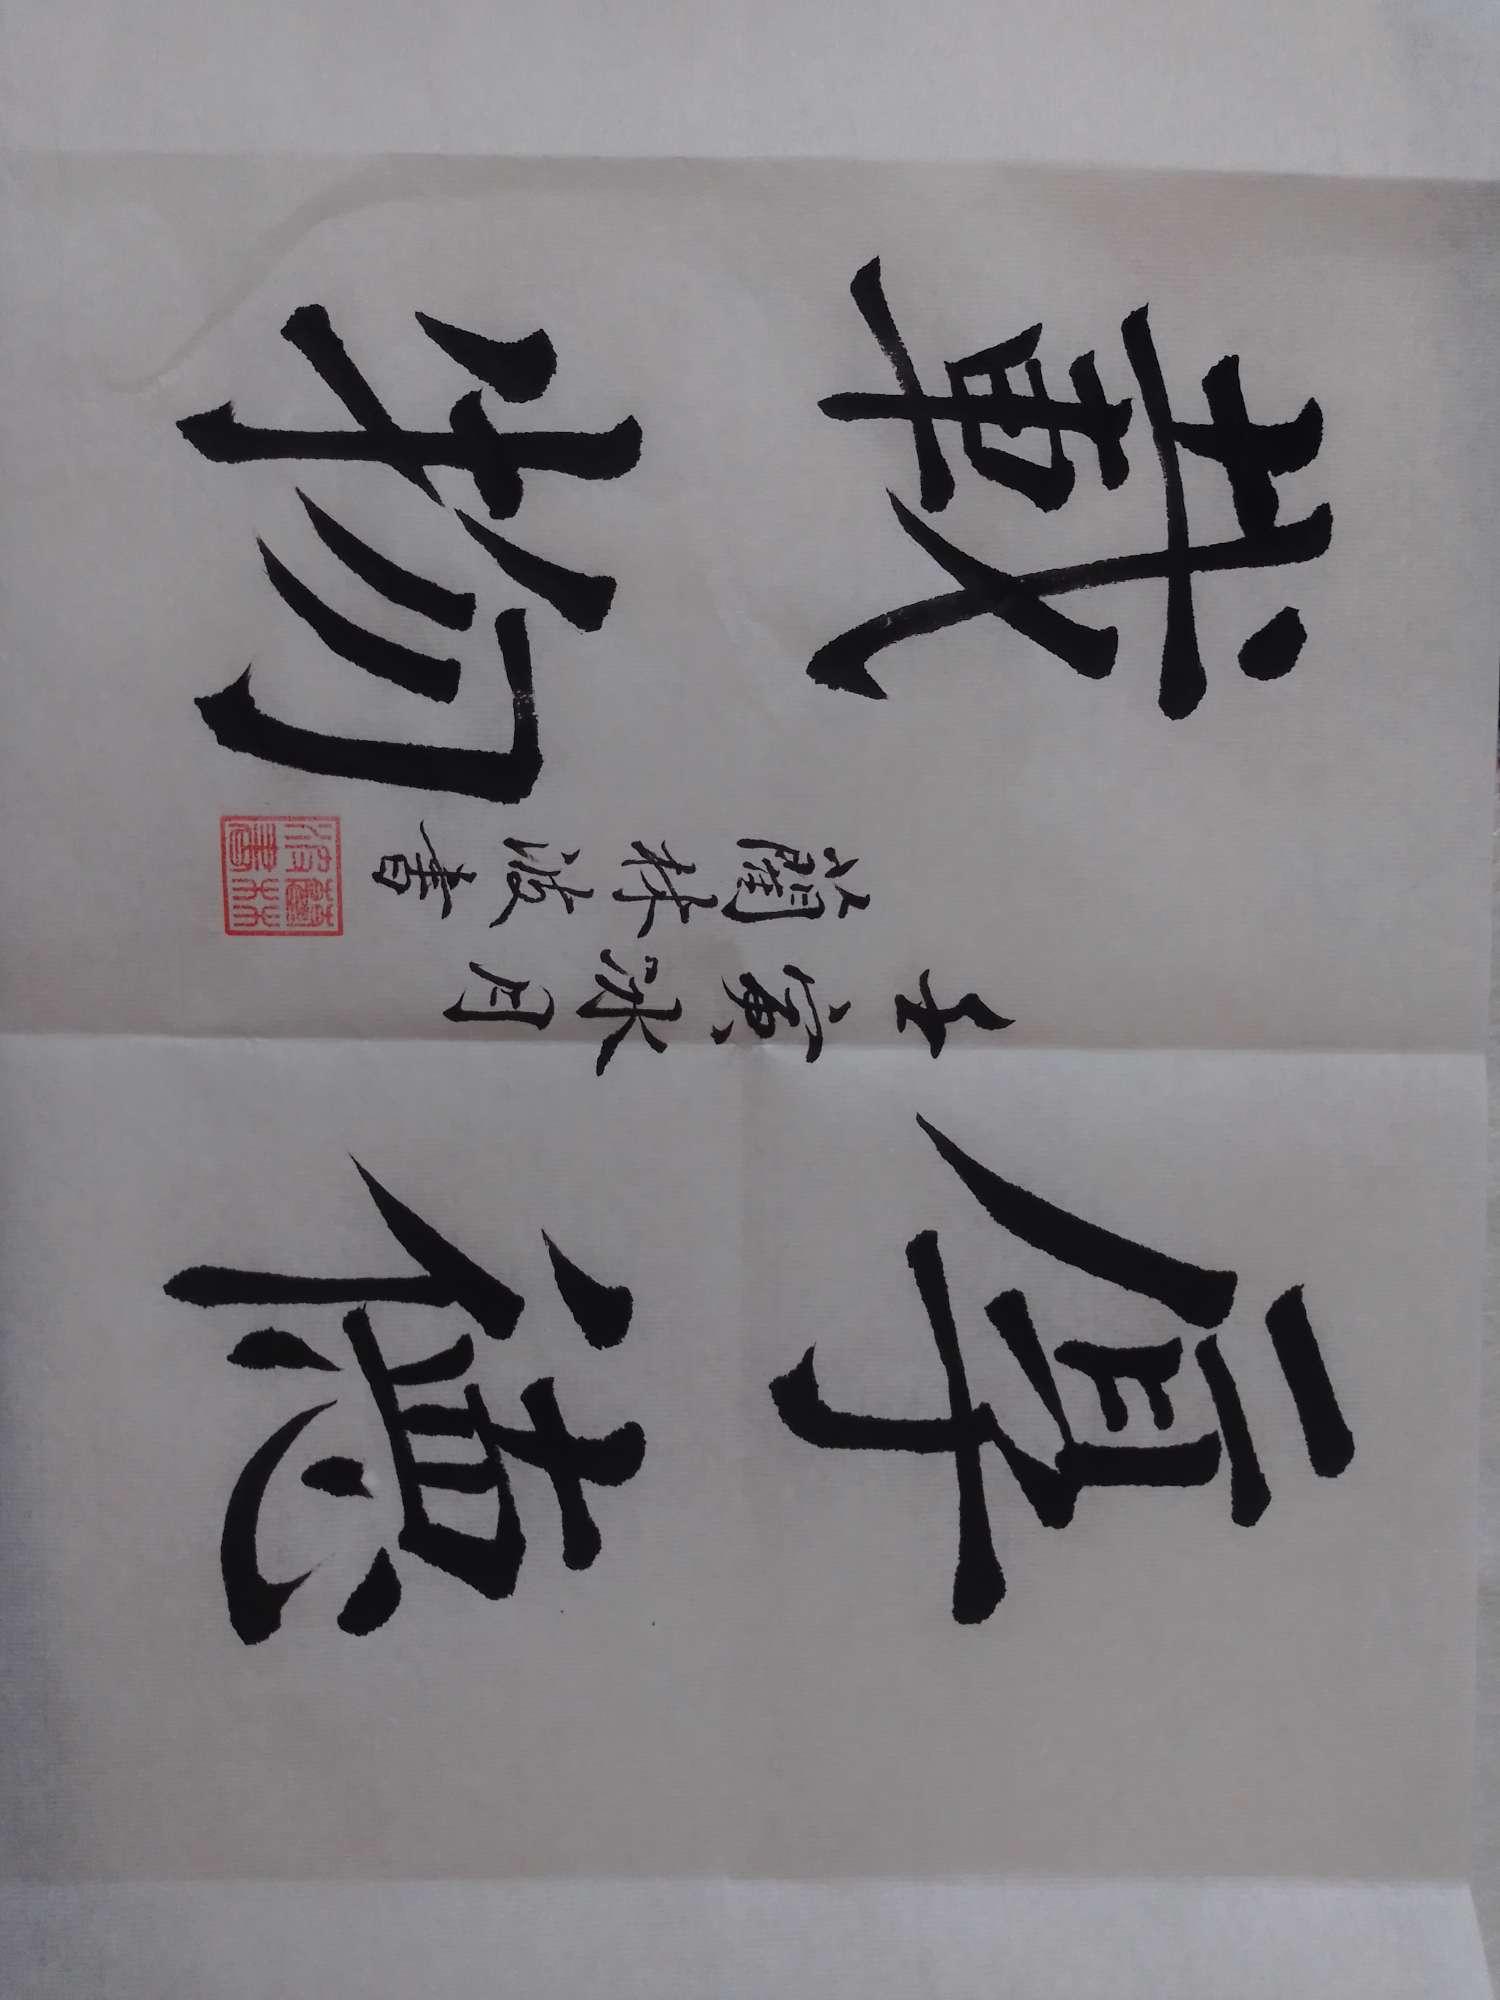 厚德
壬寅冰月
蘭林波書
載物